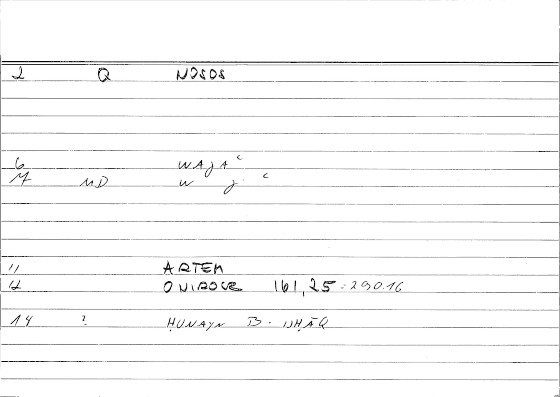 2 Q NOSOS
6 WAJAʿ
M MD W J ʿ
11 ARTEM
12 ONIROCR 161,25 = 290.16
14 ? ḤUNAYN B. ISḤĀQ